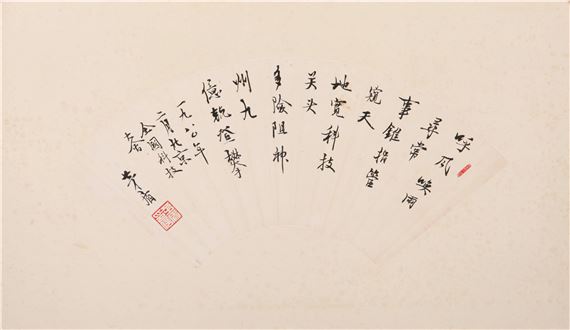 呼风唤雨
尋常
事錐指管
窥天
地宽科技
关头
多险阻神
州九
億敢登攀
一九八〇年
二月北京
全國科技
大会